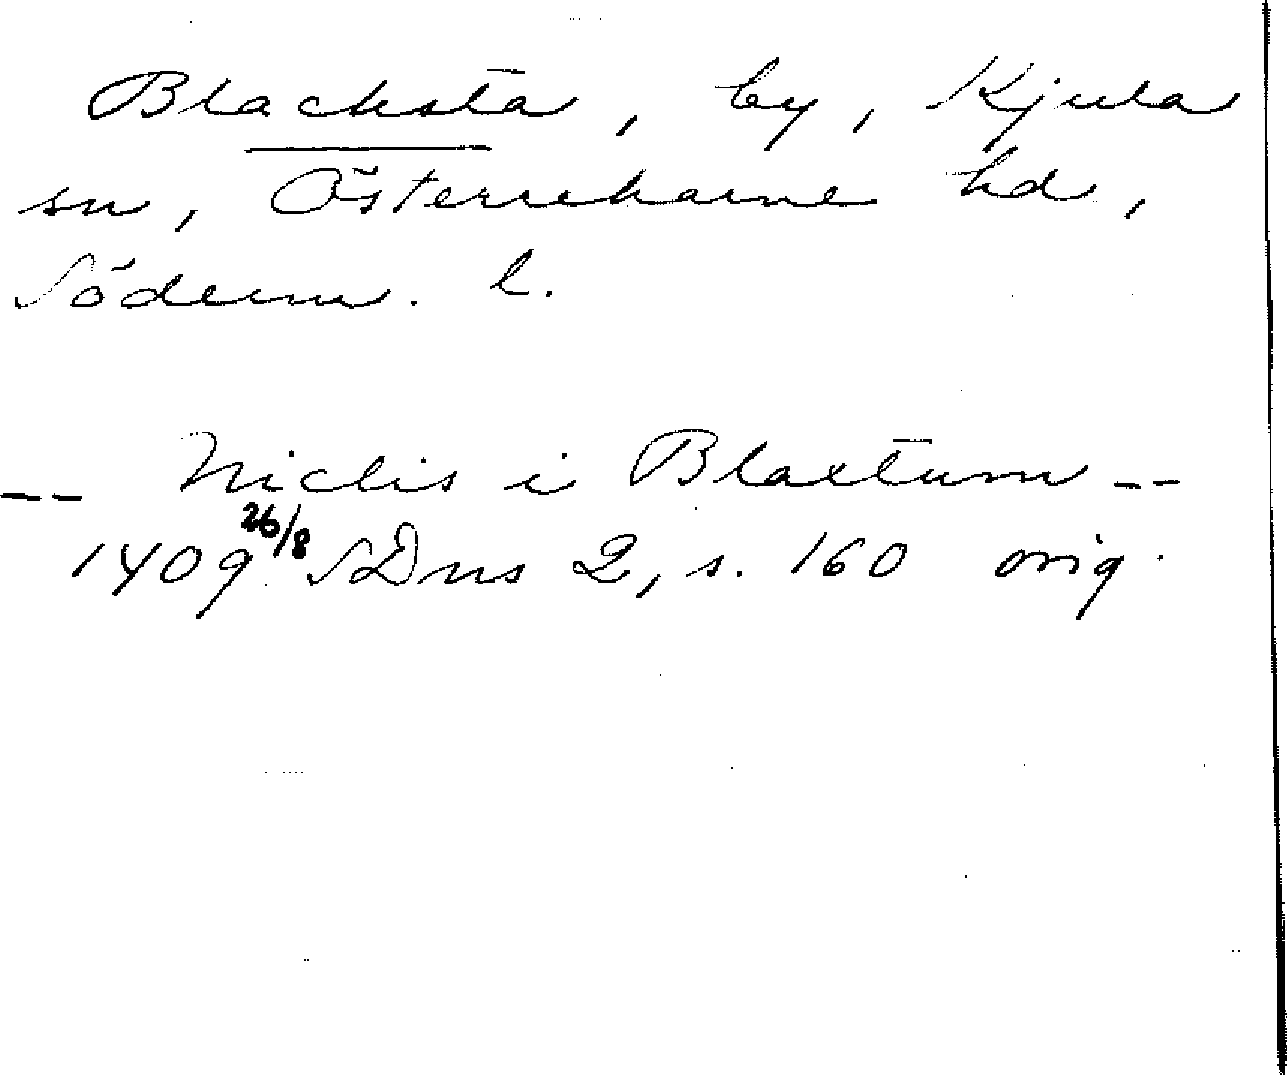 Blacksta, by, Kjula
sn, Österrekarne hd,
Söderm. l.
-- Niclis i Blaxtum --
1409 26/8 SDns 2, s. 160 orig.